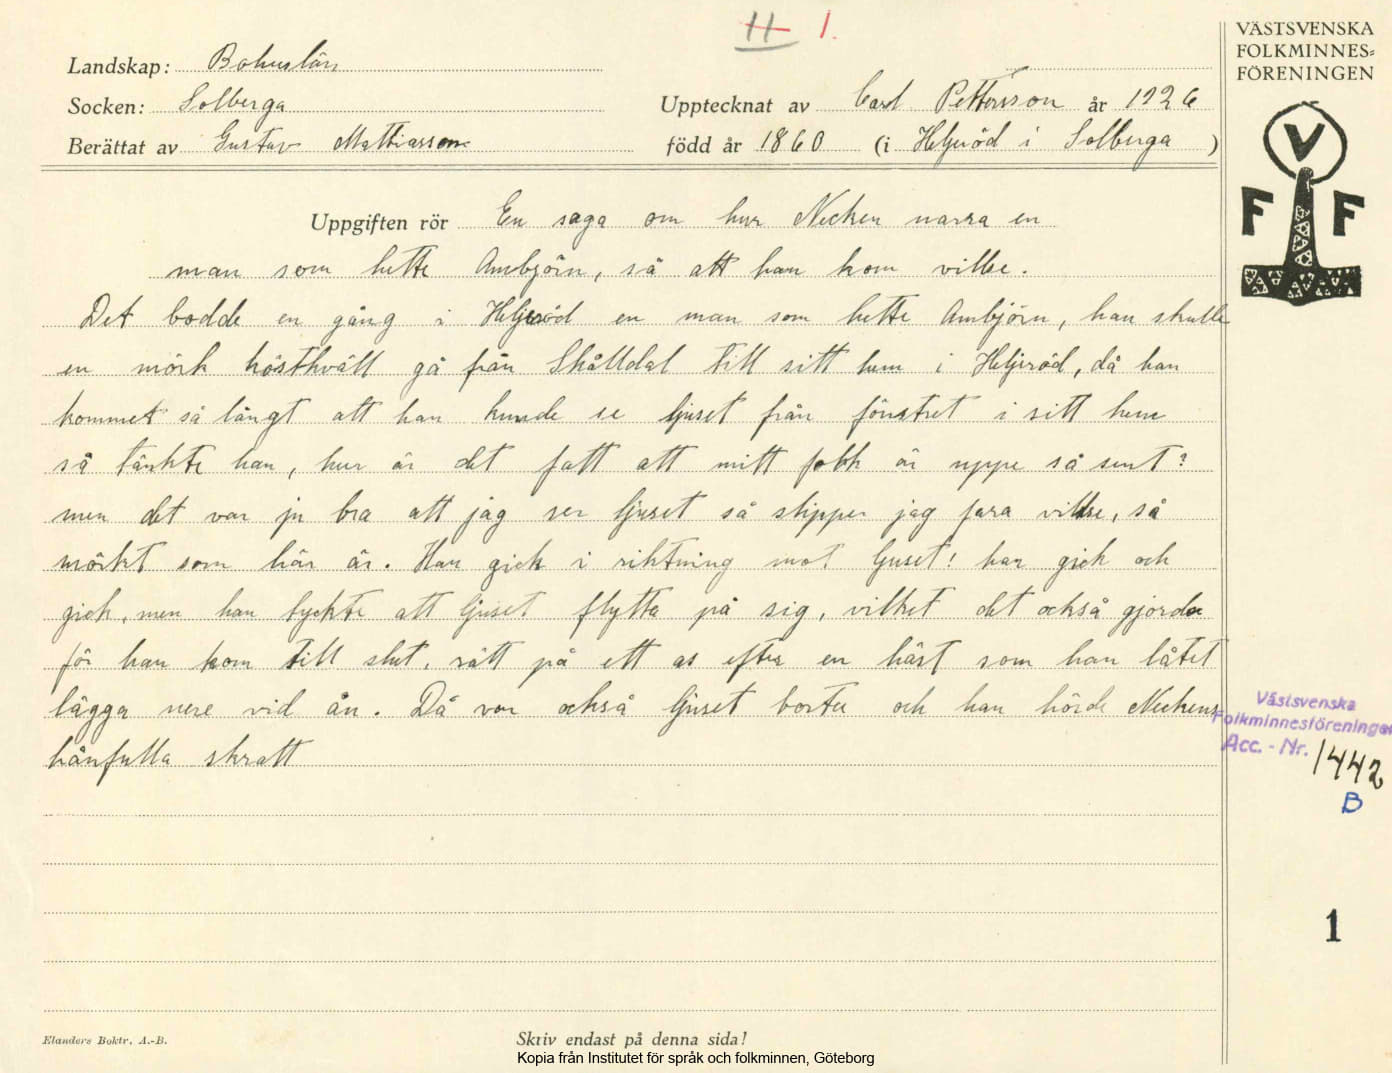 H 1.
VÄSTSVENSKA
FOLKMINNES=
FÖRENINGEN
Landskap: Bohuslän
Socken: Solberga
Upptecknat av Carl Pettersson år 1926
Berättat av Gustav Mattiasson
född år 1860 (i Heljeröd i Solberga )
V
F F
Uppgiften rör En saga om hur Necken narra en
man som hette Ambjörn, så att han kom villse.
Det bodde en gång i Heljeröd en man som hette Ambjörn, han skulle
en mörk hösthväll gå från Skålldal till sitt hem i Heljeröd, då han
kommet så långt att han kunde se ljuset från fönstret i sitt hem
så tänkte han, hur är det fatt att mitt folk är uppe så sent?
men det var ju bra att jag ser ljuset så slipper jag fara villse, så
mörkt som här är. Han gick i riktning mot ljuset! han gick och
gick, men han tyckte att ljuset flytta på sig, vilket det också gjorde
för han kom till slut, rätt på ett as efter en häst som han låtet
lägga nere vid ån. Då var också ljuset borta och han hörde Neckens
hånfulla skratt
Västsvenska
Folkminnesföreningen
Acc. - Nr. 1442
B
1
Elanders Boktr. A.-B.
Skriv endast på denna sida!
Kopia från Institutet för språk och folkminnen, Göteborg